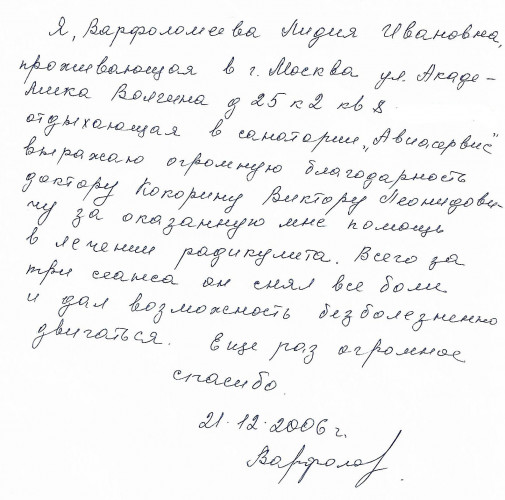 Я, Варфоломеева Лидия Ивановна,
проживающая в г. Москва ул. Акаде-
мика Волгина д 25 к 2 кв 8
отдыхающая в санатории „Авиасервис"
выражаю огромную благодарность
доктору Кокорину Виктору Леонидови-
чу за оказанную мне помощь
в лечении радикулита. Всего за
три сеанса он снял все боли
и дал возможность безболезненно
двигаться. Еще раз огромное
спасибо.
21.12.2006 г.
Варфолом